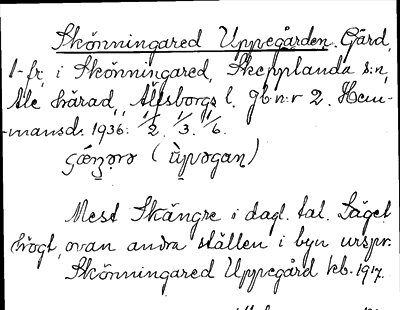 Skönningared Uppegården. Gård,
1-fr. i Skönningared, Skepplanda s:n,
Ale härad, Älvsborgs l. Jb n:r 2. Hem-
mansd. 1936: 1/2. 1/3. 1/6.
(ùpəgan)
Mest Skängre i dagl. tal. Läget
högt, ovan andra ställen i byn urspr.
Skönningared Uppegård kb. 1917.